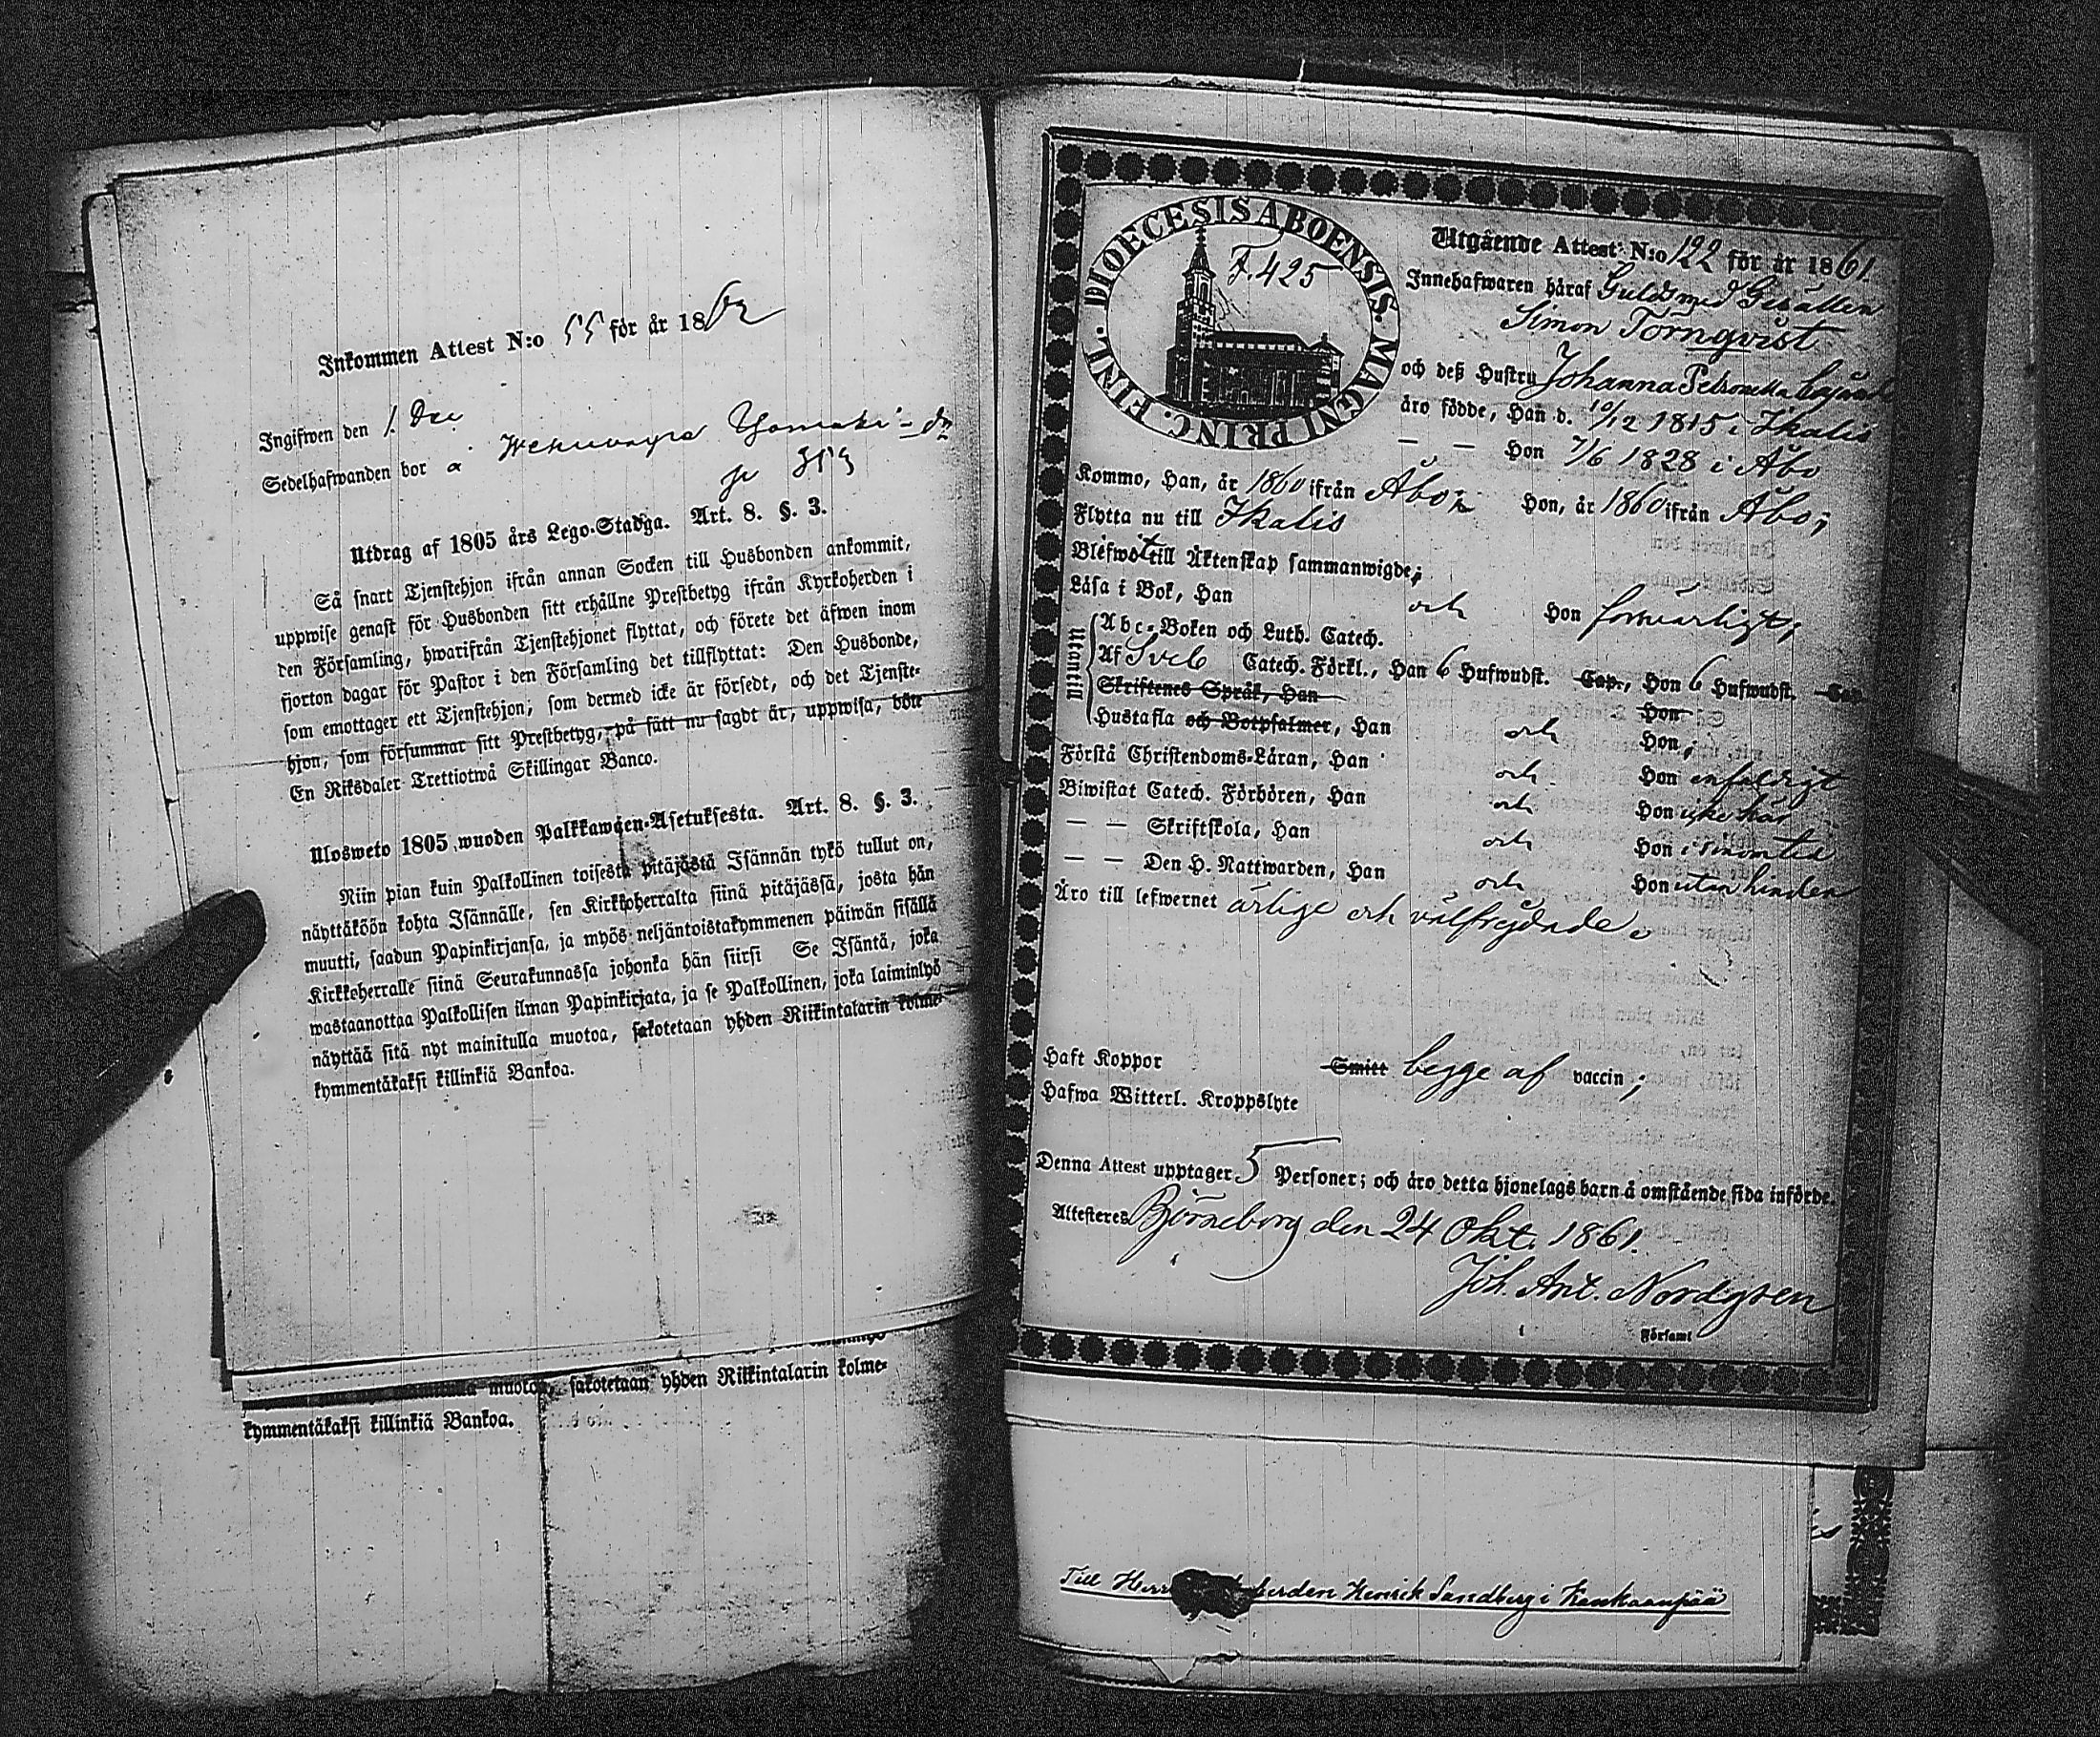 Inkommen Attest N:o 55 för år 1862
Ingifwen den 1. Dec
Sedelhafwanden bor
Utdrag af 1805 års Lego-Stadga. Art. 8. §. 3.
Så snart Tjenstehjon ifrån annan Socken till Husbonden ankommit,
uppwise genast för Husbonden sitt erhållne Prestbetyg ifrån Kyrkoherden i
den Församling, hwarifrån Tjenstehjonet flyttat, och förete det äfwen inom
fjorton dagar för Pastor i den Församling det tillflyttat: Den Husbonde,
som emottager ett Tjenstehjon, som dermed icke är försedt, och det Tjenste-
hjon, som försummar sitt Prestbetyg, på sätt nu sagdt är, uppwisa, böte
En Riksdaler Trettiotwå Skillingar Banco.
Ulosweto 1805 wuoden Palkkawäen-Asetuksesta. Art. 8. §. 3.
Niin pian kuin Palkollinen toisesta pitäjästä Isännän tykö tullut on,
näyttäköön kohta Isännälle, sen Kirkkoherralta siinä pitäjässä, josta hän
muutti, saadun Papinkirjansa, ja myös neljäntoistakymmenen päiwän sisällä
Kirkkoherralle siinä Seurakunnassa johonka hän siirsi Se Isäntä, joka
wastaanottaa Palkollisen ilman Papinkirjata, ja se Palkollinen, joka laiminlyö
näyttää sitä nyt mainitulla muotoa, sakotetaan yhden Riikintalarin kolme-
kymmentäkaksi killinkiä Bankoa.
muotoa, sakotetaan yhden Riikintalarin kolme-
kymmentäkaksi killinkiä Bankoa.
DIOECESIS ABOENSIS. MAGNI PRINC. FINL.
F. 425
Utgående Attest N:o 122 för år 1861.
Innehafwaren häraf Guldsmed Gesällen
Simon Törnqvist
och deß Hustru Johanna Petronella
äro födde, Han d. 10/12 1815 i Ikalis
— — Hon 7/6 1828 i Åbo
Kommo, Han, år 1860 ifrån Åbo; Hon, år 1860 ifrån Åbo;
Flytta nu till Ikalis
Blefwo till Äktenskap sammanwigde;
Läsa i Bok, Han och Hon försvarligt;
Utantill
Abc-Boken och Luth. Catech.
Af Sveb Catech. Förkl., Han 6 Hufwudst. Cap., Hon 6 Hufwudst. Cap.
Skriftenes Språk, Han Hon
Hustafla och Botpsalmer, Han och Hon;
Förstå Christendoms-Läran, Han och Hon enfaldigt
Biwistat Catech. Förhören, Han och Hon icke här
— — Skriftskola, Han och Hon i sinom tid
— — Den H. Nattwarden, Han och Hon utan hinder
Äro till lefwernet ärlige och välfrejdade
Haft Koppor Smitt begge af vaccin;
Hafwa Witterl. Kroppslyte
Denna Attest upptager 5 Personer; och äro detta hjonelags barn å omstående sida införde.
Attesteras Björneborg den 24 Okt. 1861.
Joh. Ant. Nordgren
Församl
Till Herr herden Henrik Sandberg i Kankaanpää